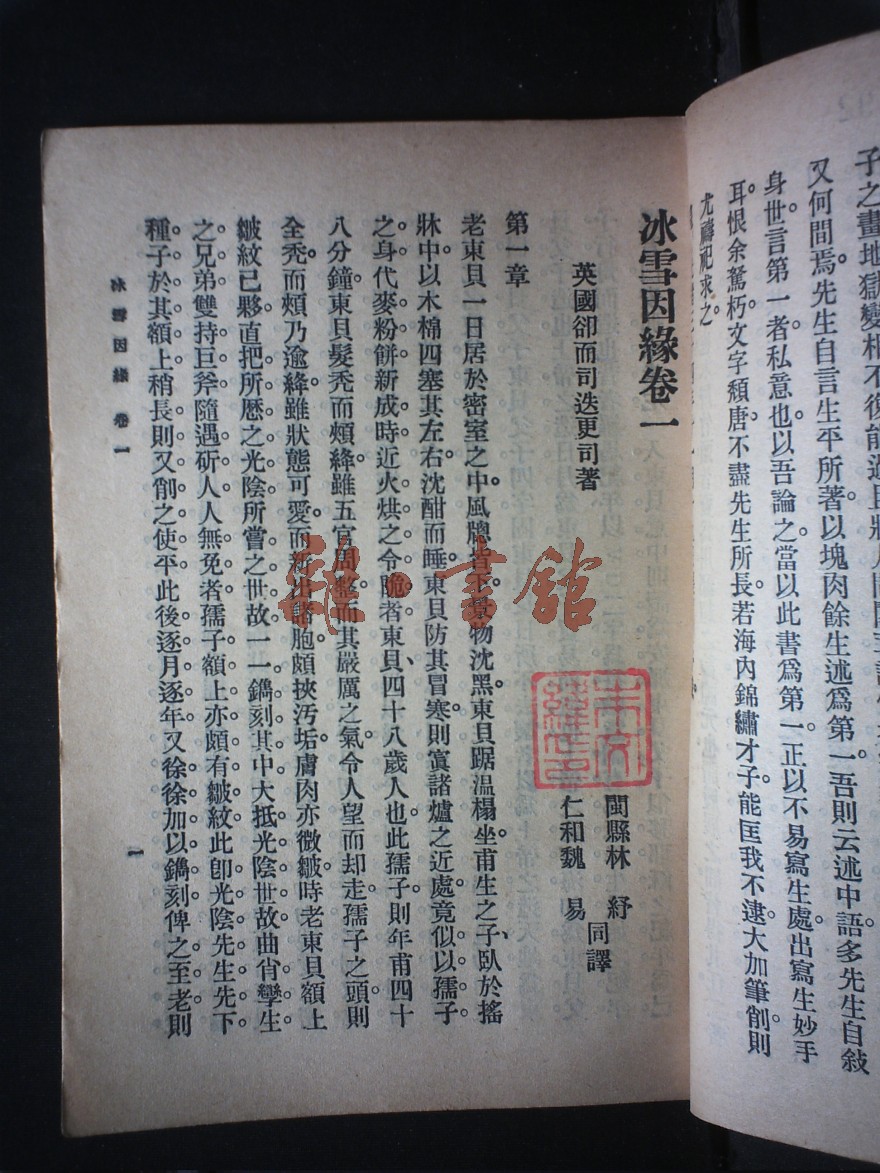 子之畫地獄變相不復能過且狀人間
又何間焉先生自言生平所著以塊肉餘生述爲第一吾則云述中語多先生自敍
身世言第一者私意也以吾論之當以此書爲第一正以不易寫生處出寫生妙手
耳恨余駑朽文字頹唐不盡先生所長若海內錦繡才子能匡我不逮大加筆削則
尤禱祀求之
冰雪因緣卷一
英國卻而司迭更司著
閩縣林　紓
仁和魏　易
同譯
第一章
老東貝一日居於密室之中風牕皆下景物沈黑東貝踞溫榻坐甫生之子、臥於搖
牀中以木棉四塞其左右沈酣而睡東貝防其冒寒則寘諸爐之近處竟似以孺子
之身代麥粉餅新成時近火烘之令脆者東貝、四十八歲人也此孺子則年甫四十
八分鐘東貝髮禿而頰絳雖五官周整而其嚴厲之氣令人望而却走孺子之頭則
全禿而頰乃逾絳雖狀態可愛而新出諸胞頗挾汚垢膚肉亦微皺時老東貝額上
皺紋已夥直把所歷之光陰所嘗之世故一一鐫刻其中大抵光陰世故曲肖孿生
之兄弟雙持巨斧隨遇斫人人無免者孺子額上亦頗有皺紋此卽光陰先生先下
種子於其額上稍長則又削之使平此後逐月逐年又徐徐加以鐫刻俾之至老則
冰雪因緣　卷一
一
書館